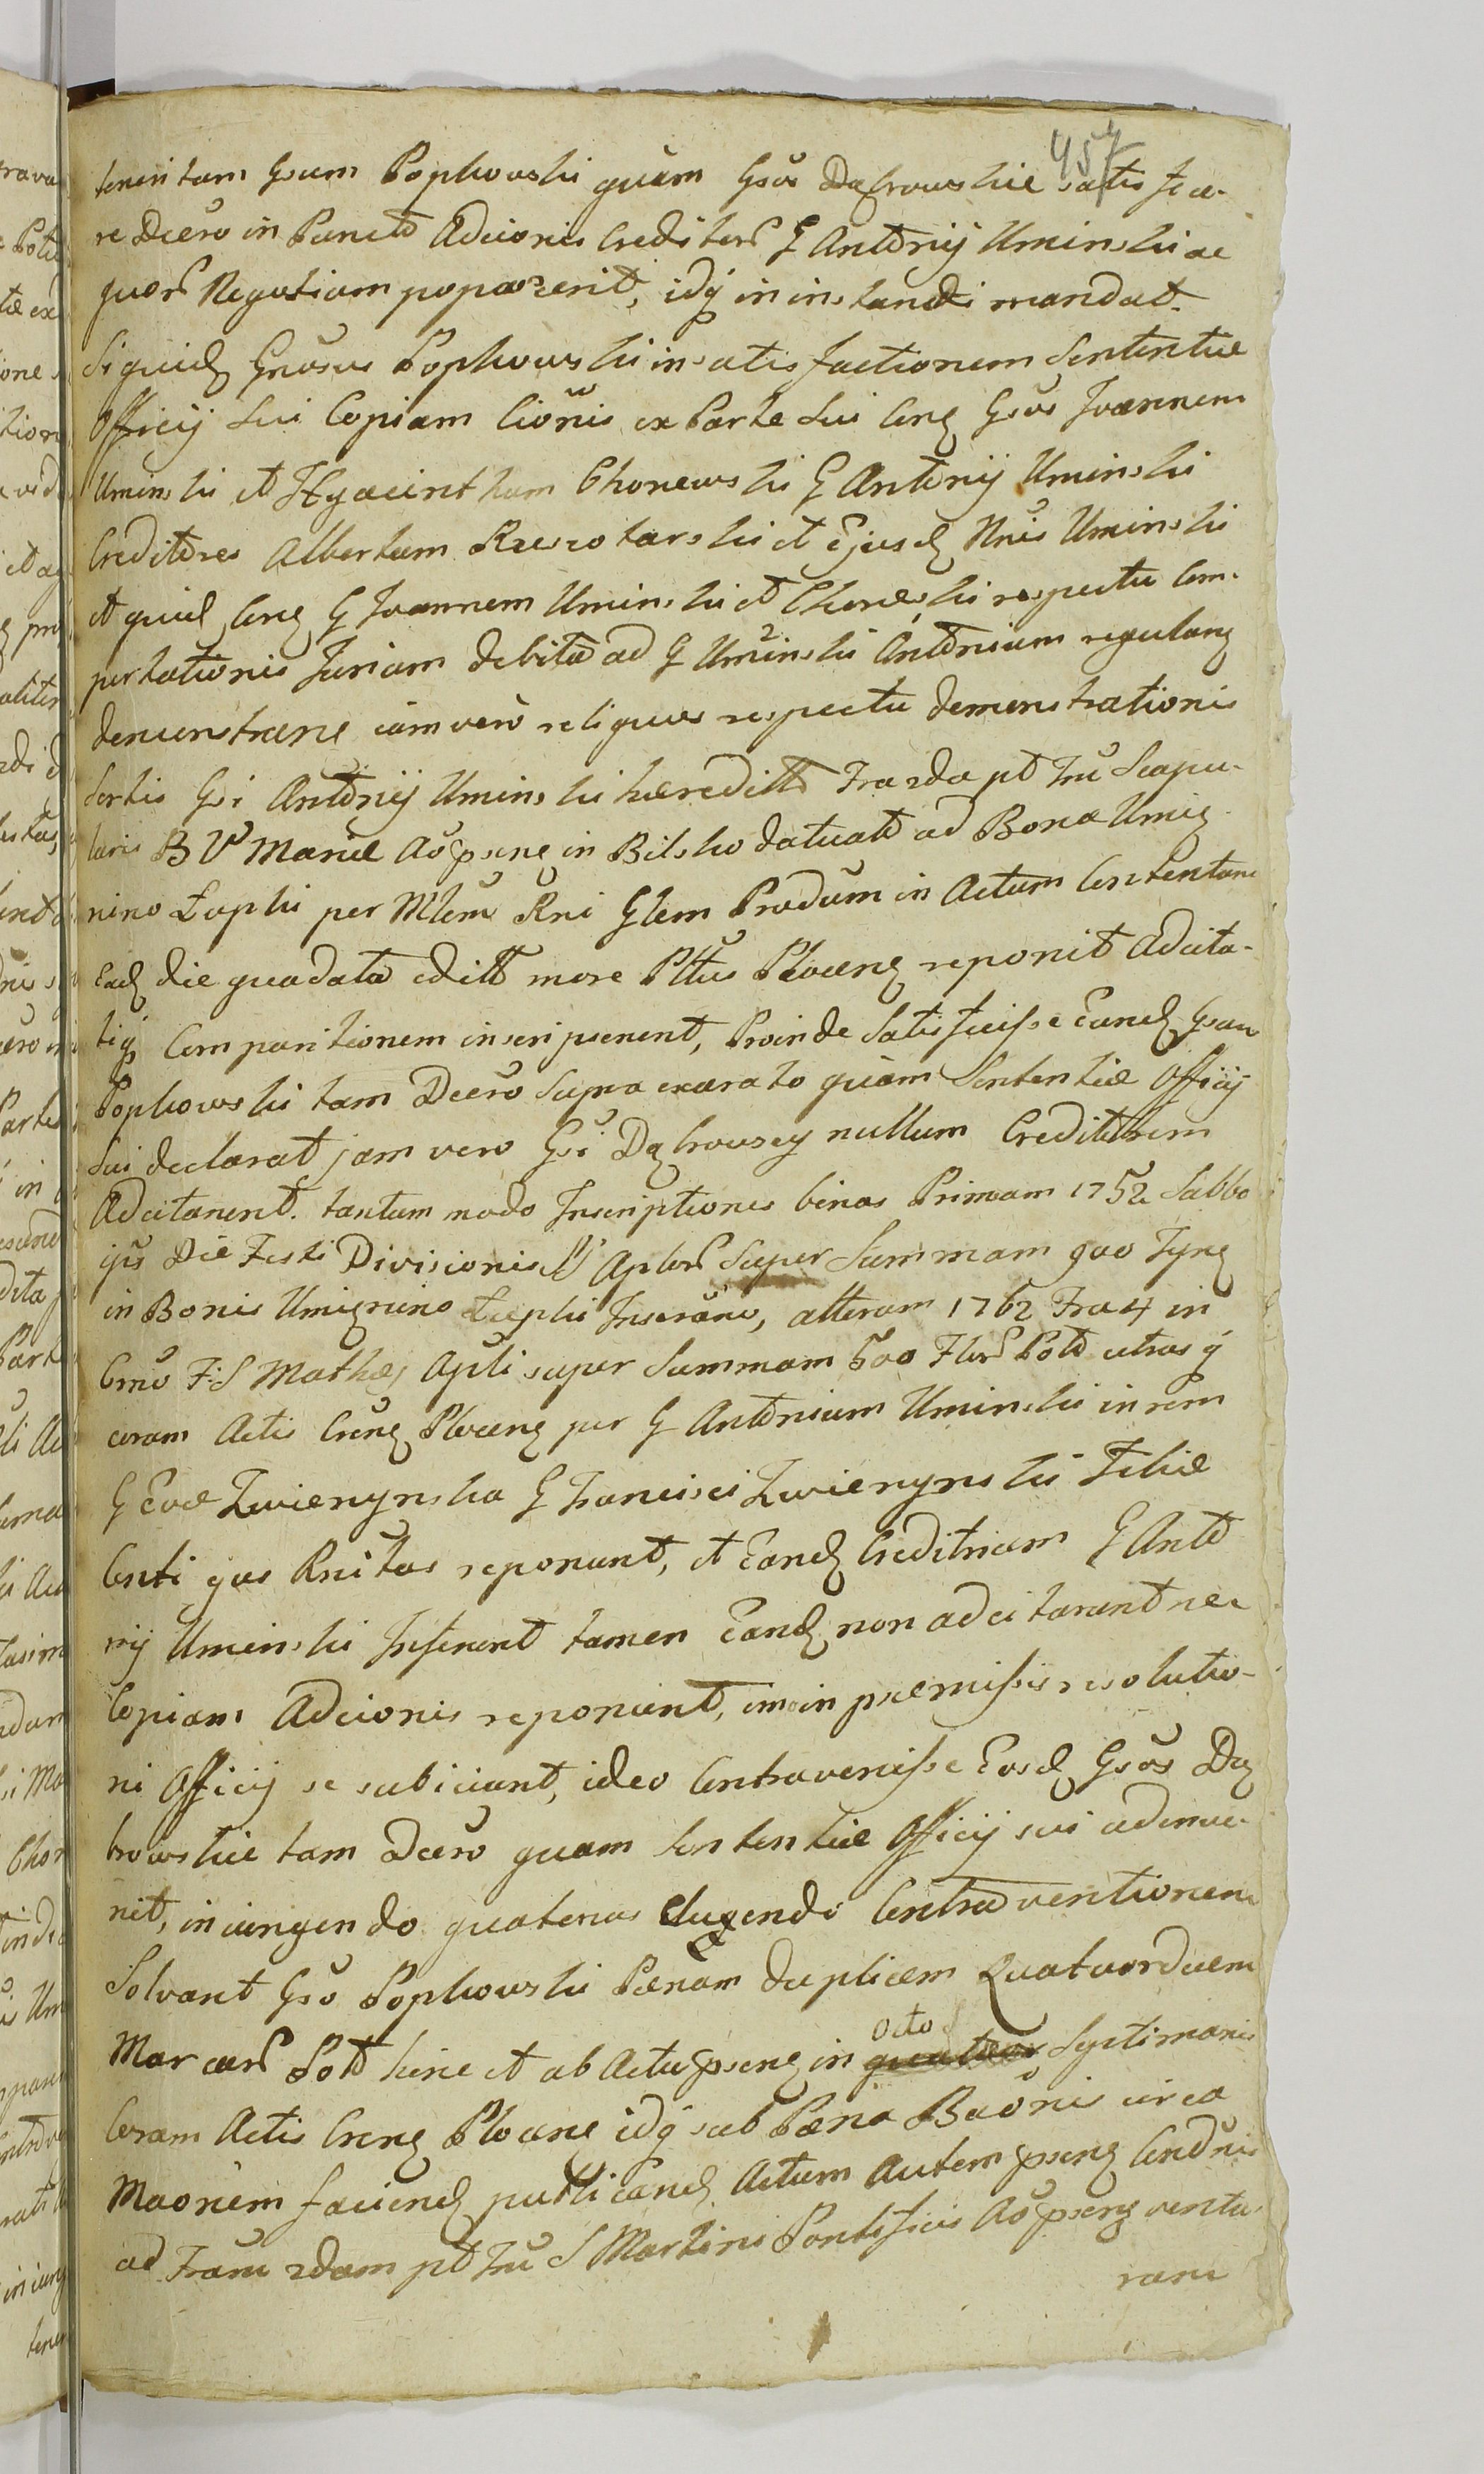 457
tenentam Gsum Popkowski quàm Gsos Dąbrowskie satis face-
re Decro in Puncto Adcionis Creditorū G Antonij Uminski ac
quorū Negotium poposcerit, idq in instandi mandat.
Siquid Gnosus Popkowski in satisfactionem Sententiæ
Officij sui Copiam Cionis ex Parte sui Cong Gsos Joannem
Uminski et Hyacinthum Chonewski G Antonij Uminski
Creditores Albertum Rzeszotarski et Ejusd Nris Uminski
et quid Cong G Joannem Uminski et Choneski respectu Com-
portationis Jurium debitæ ad G Uminski Antonium regulang
demonstrare iam verò reliquos respectu demonstrationis
Sortis Gsi Antonij Uminski hæreditt Fra 2da pt Fm Scapu-
laris B V Mariæ Ao pseng in Bilsko datuat ad Bona Umię-
nino Łapki per Mlem Rni Glem Produm in Actum Contentum
Ead die quadata editt more Plltus Ploceng reponit Adcita-
tiq Comparitionem inscripserent, Proinde Satisfecisse Eund Gsum
Popkowski tam Decro supra exarato quàm Sententiæ Officij
Sui declarat jam vero Gsi Dąbrowscy nullum Creditorem
Adcitarent. tantum modo Inscriptiones binas Primam 1752 Sabbo
ipš Die Festi Divisionis SS Aplorū Super Summam 900 Tynę
in Bonis Umięnino Łapki Inscranō, alteram 1762 Fra 4 in
Cmo F: S Mathæj Apli super Summam 500 Flor Polt utrasq
coram Actis Creng Ploceng per G Antonium Uminski in rem
G Evæ Zwierzynska G Francisci Zwierzynski Filiæ
Conti gas Rnitas reponunt, et Eand Creditricem G Anto
nij Uminski Inferunt tamen Eand non adcitarunt nec
Copiam Adcionis reponunt, imo in præmissis resolutio-
ni Officij se subiciunt, ideo Contravenisse Eosd Gsos Dą
browskie tam Decro quam Sententiæ Officij sui adinve-
nit, iniungendo quatenus elugendo Contraventionem
Solvant Gso Popkowski Pænam duplicem Quatuordecem
Marcarū Polt hinc et ab Actu pseng in octo Septimanis
Coram Actis Creng Ploceng idq sub Pæna Baonis circa
Maonem faciend publicand Actum Autem pseng Condnis
ad Fram 2dam pt Fm S Martini Pontificis Ao pseng ventu-
ram